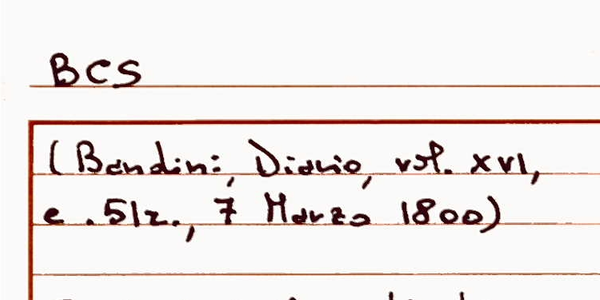 BCS
(Bandini, Diario, vol. XVI,
c. 51r., 7 Marzo 1800)